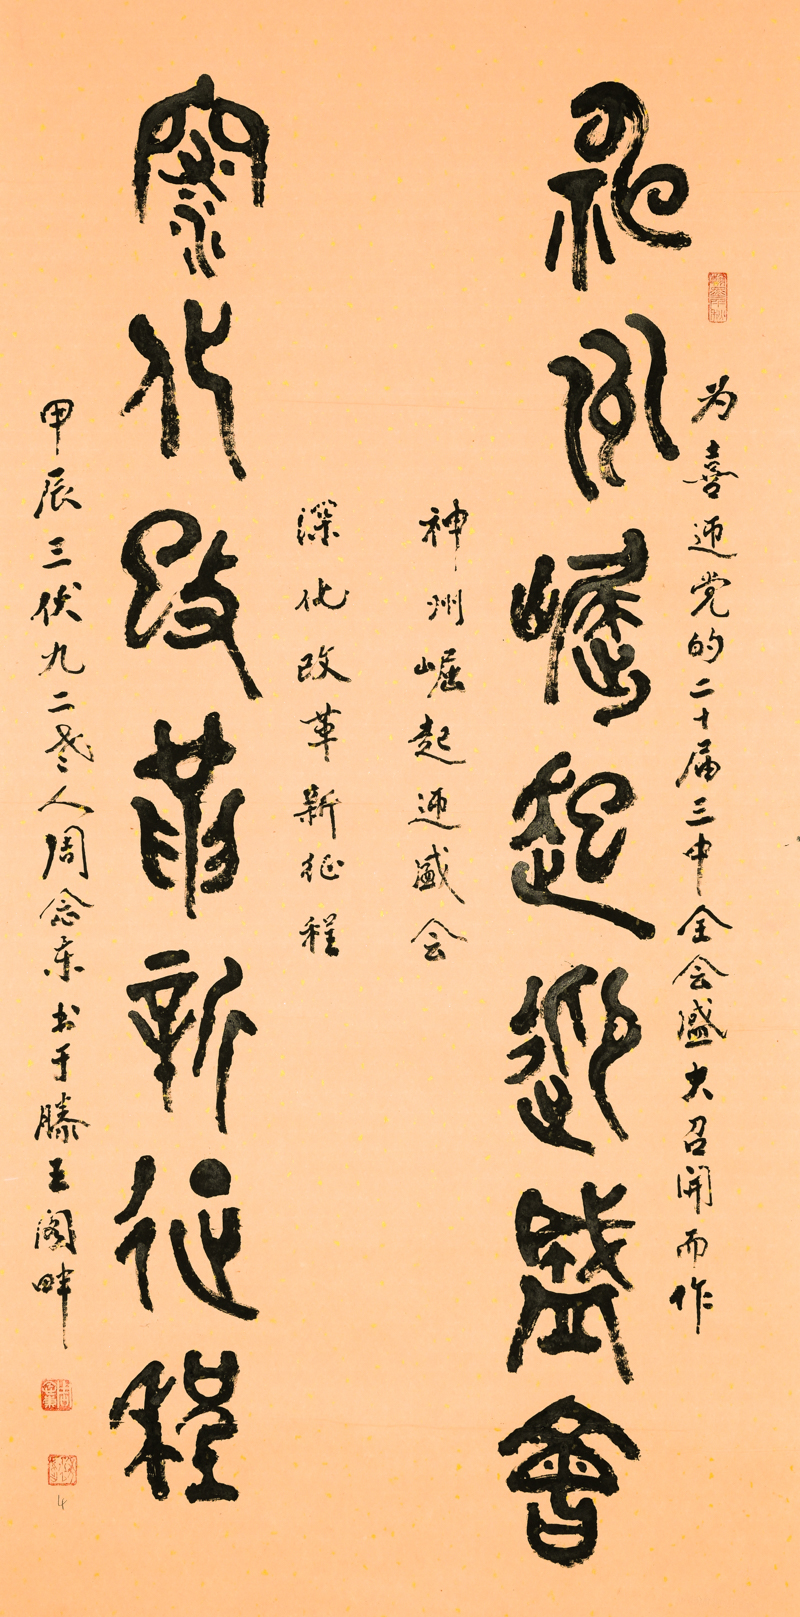 为喜迎党的二十届三中全会盛大召开而作
神州崛起迎盛會
神州崛起迎盛会
深化改革新征程
深化改革新征程
甲辰三伏九二老人周念书于滕王阁畔
4